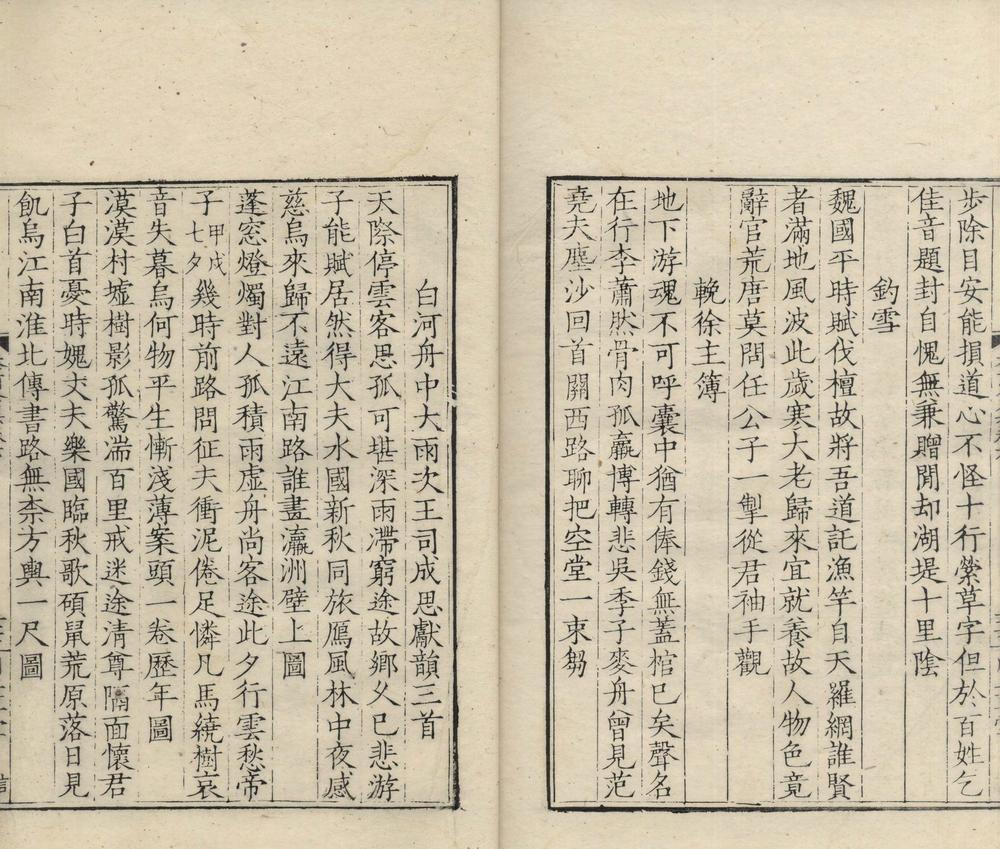 步除目安能損道心不怪十行縈草字但於百姓乞
佳音題封自愧無兼贈閒却湖堤十里陰
釣雪
魏國平時賦伐檀故將吾道託漁竿自天羅網誰賢
者滿地風波此歲寒大老歸來宜就養故人物色竟
辭官荒唐莫問任公子一掣從君袖手觀
輓徐主簿
地下游魂不可呼囊中猶有俸錢無蓋棺已矣聲名
在行李蕭然骨肉孤嬴博轉悲吳季子麥舟曾見范
堯夫塵沙回首關西路聊把空堂一束芻
白河舟中大雨次王司成思獻韻三首
天際停雲客思孤可堪深雨滯窮途故鄉久已悲游
子能賦居然得大夫水國新秋同旅鴈風林中夜感
慈烏來歸不遠江南路誰畫瀛洲壁上圖
蓬窓燈燭對人孤積雨虛舟尚客途此夕行雲愁帝
子甲戌七夕幾時前路問征夫衝泥倦足憐凡馬繞樹哀
音失暮烏何物平生慚淺薄案頭一卷歷年圖
漠漠村墟樹影孤驚湍百里戒迷途清尊隔面懷君
子白首憂時媿丈夫樂國臨秋歌碩鼠荒原落日見
飢烏江南淮北傳書路無柰方輿一尺圖